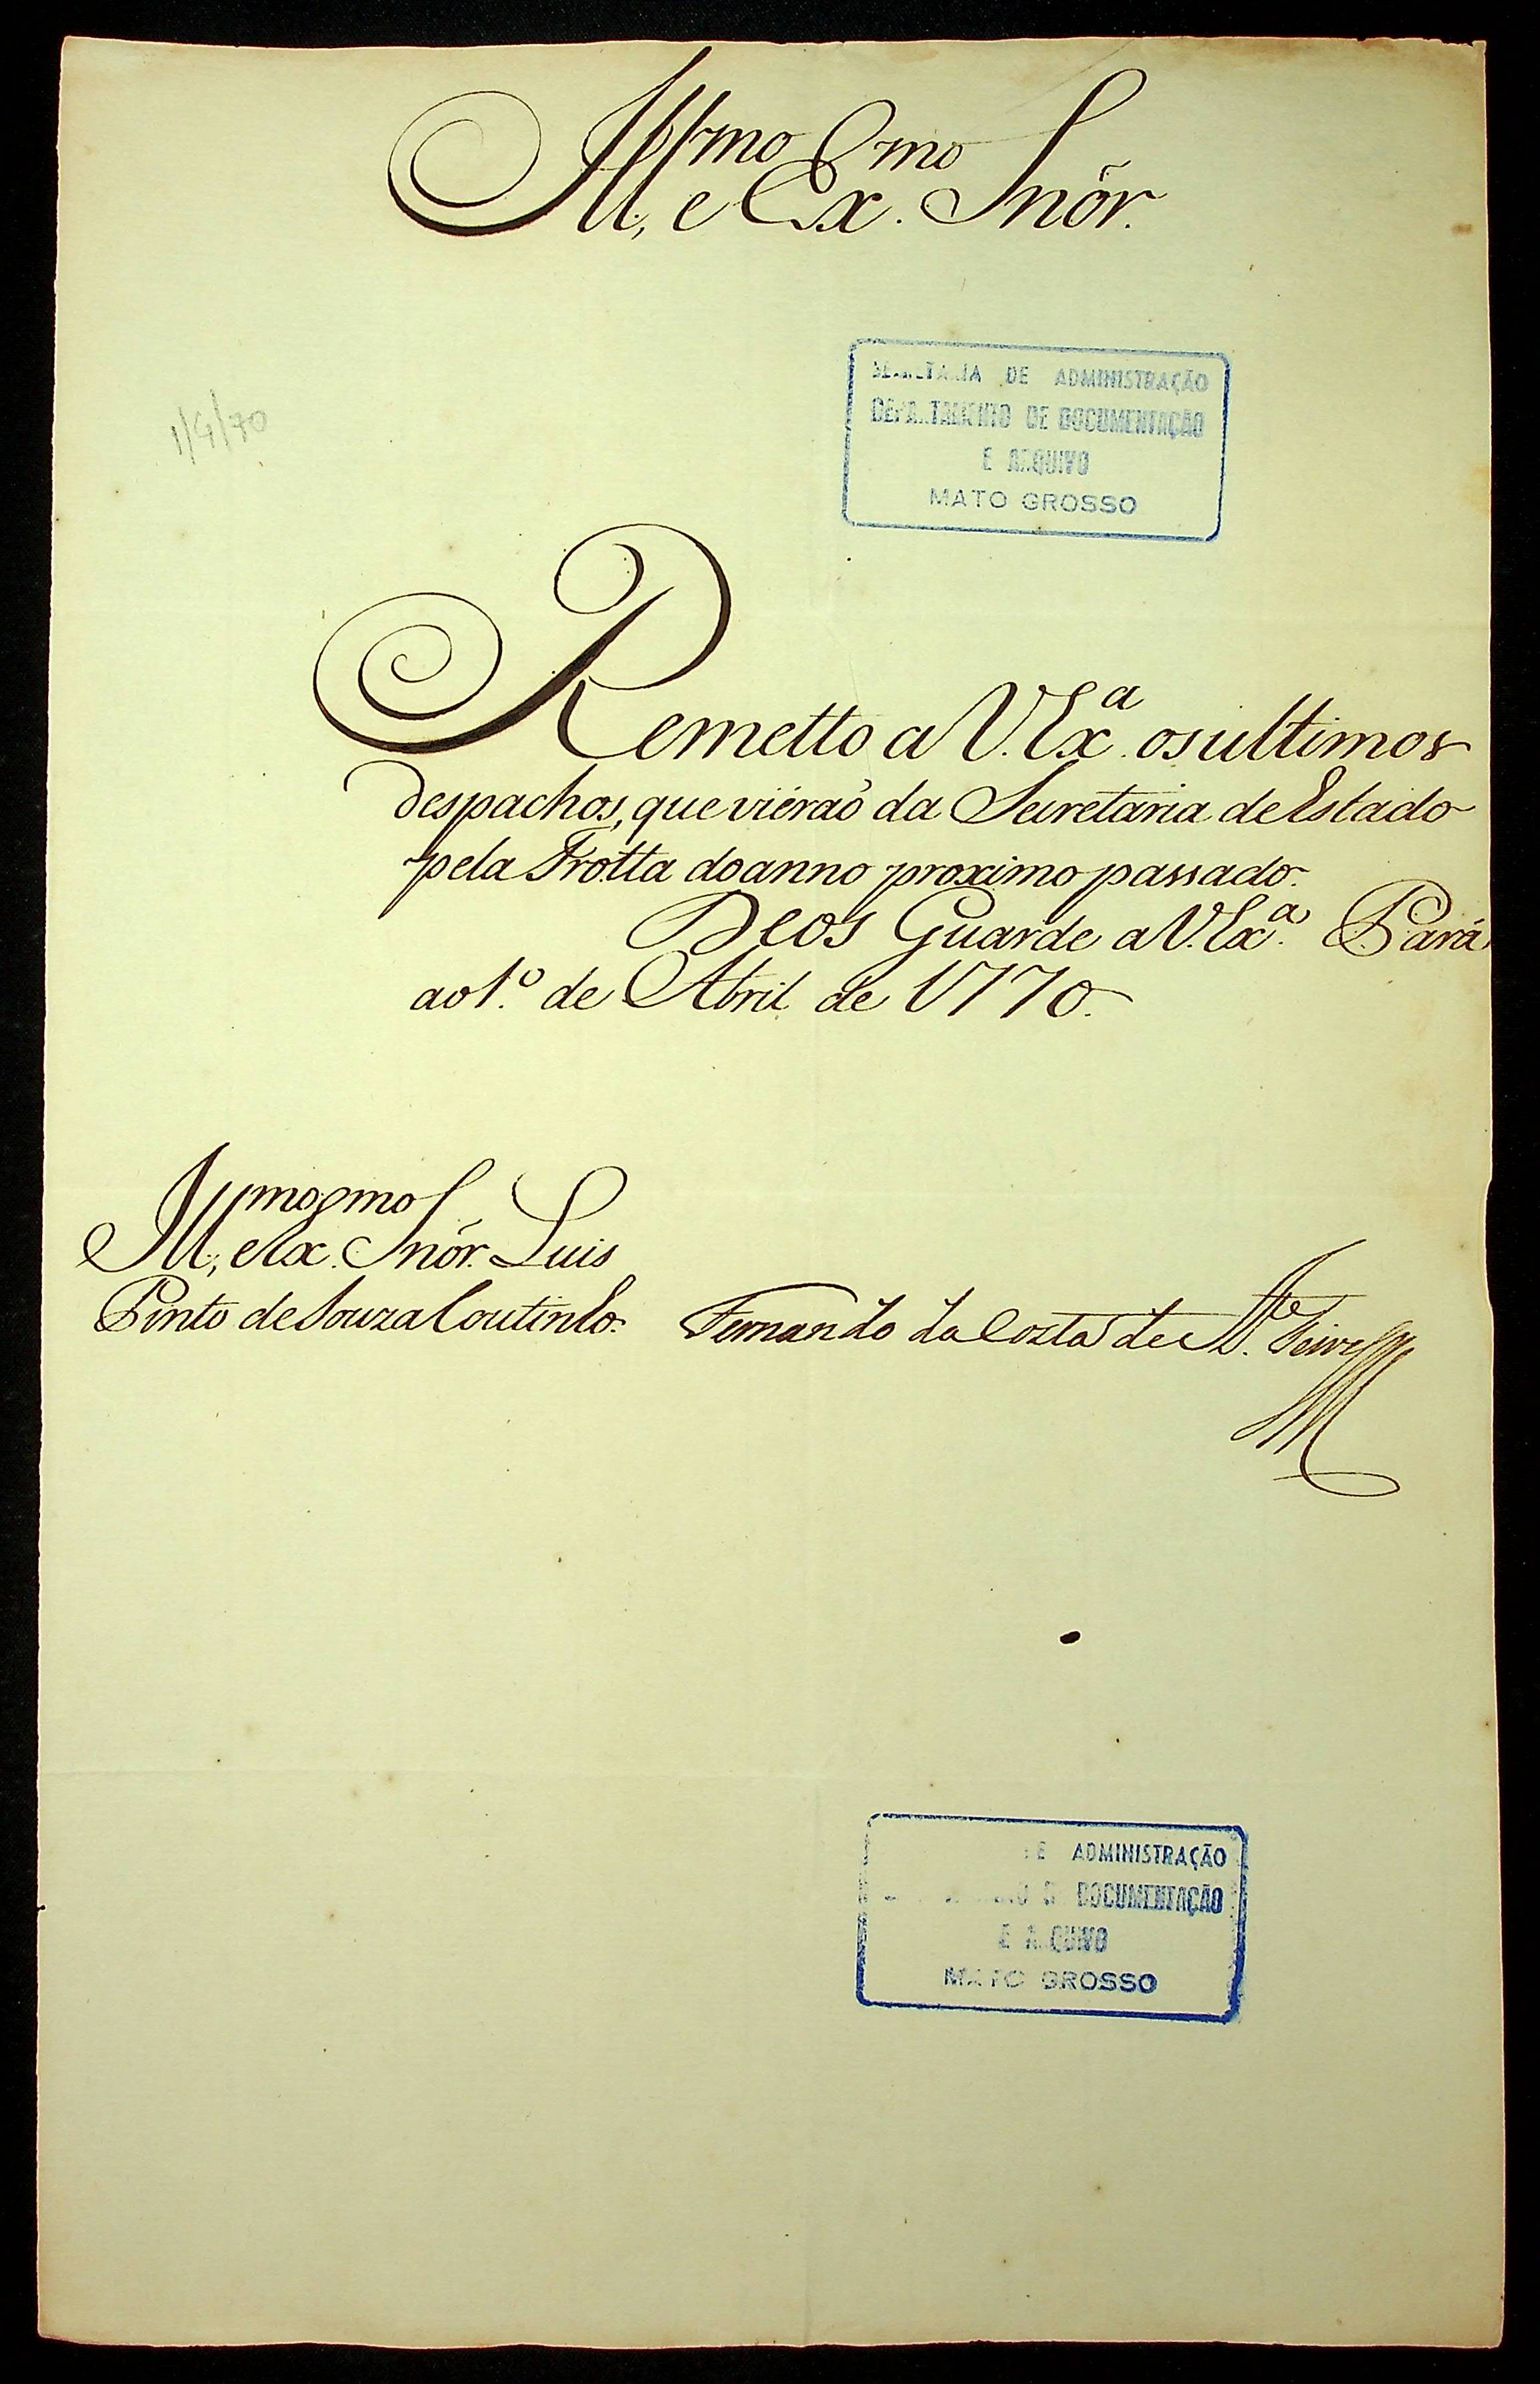 Ill.mo e Ex.mo Snõr.
SECRETARIA DE ADMINISTRAÇÃO
DEPARTAMENTO DE DOCUMENTAÇÃO
E ARQUIVO
MATO GROSSO
1/4/70
Remetto a V. Ex.a os ultimos
despachos, que viéraõ da Secretaria de Estado
pela Frotta do anno proximo passado.
Deos Guarde a V. Ex.a Pará
ao 1.º de Abril de 1770.
Ill.mo e Ex.mo Snõr. Luis
Pinto de Souza Coutinho.
Fernando da Costa de At.e Teive
DE ADMINISTRAÇÃO
DOCUMENTAÇÃO
E ARQUIVO
MATO GROSSO